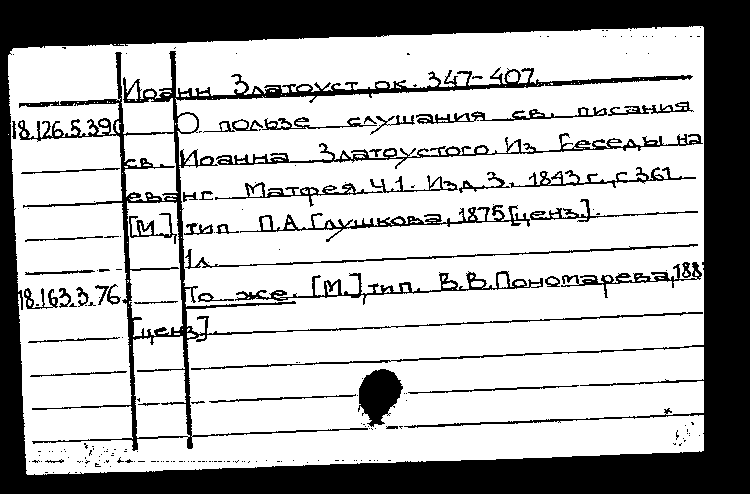 Иоанн Златоуст, ок. 347-407.
18.126.5.390 О пользе слушания св. писания
св. Иоанна Златоустого. Из Беседы на
еванг. Матфея. Ч.1. Изд. 3. 1843 г., с 361.
[М.], тип. П.А. Глушкова, 1875 [ценз.].
1л.
18.163.3.76. То же. [М.], тип. В.В. Пономарева,
[ценз].